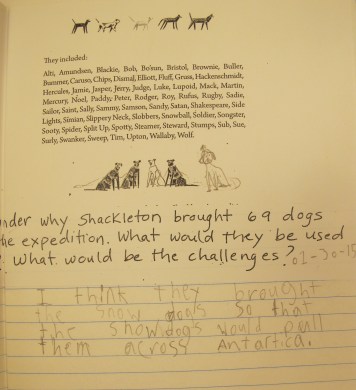 They included:
Alti, Amundsen, Blackie, Bob, Bo'sun, Bristol, Brownie, Buller,
Bummer, Caruso, Chips, Dismal, Elliott, Fluff, Gruss, Hackenschmidt,
Hercules, Jamie, Jasper, Jerry, Judge, Luke, Lupoid, Mack, Martin,
Mercury, Noel, Paddy, Peter, Rodger, Roy, Rufus, Rugby, Sadie,
Sailor, Saint, Sally, Sammy, Samson, Sandy, Satan, Shakespeare, Side
Lights, Simian, Slippery Neck, Slobbers, Snowball, Soldier, Songster,
Sooty, Spider, Split Up, Spotty, Steamer, Steward, Stumps, Sub, Sue,
Surly, Swanker, Sweep, Tim, Upton, Wallaby, Wolf.
nder why Shackleton brought 69 dogs
he expedition. What would they be used
? What would be the challenges? 01-30-15
I think they brought
the snow dogs so that
the snowdogs would pull
them across Antartica.